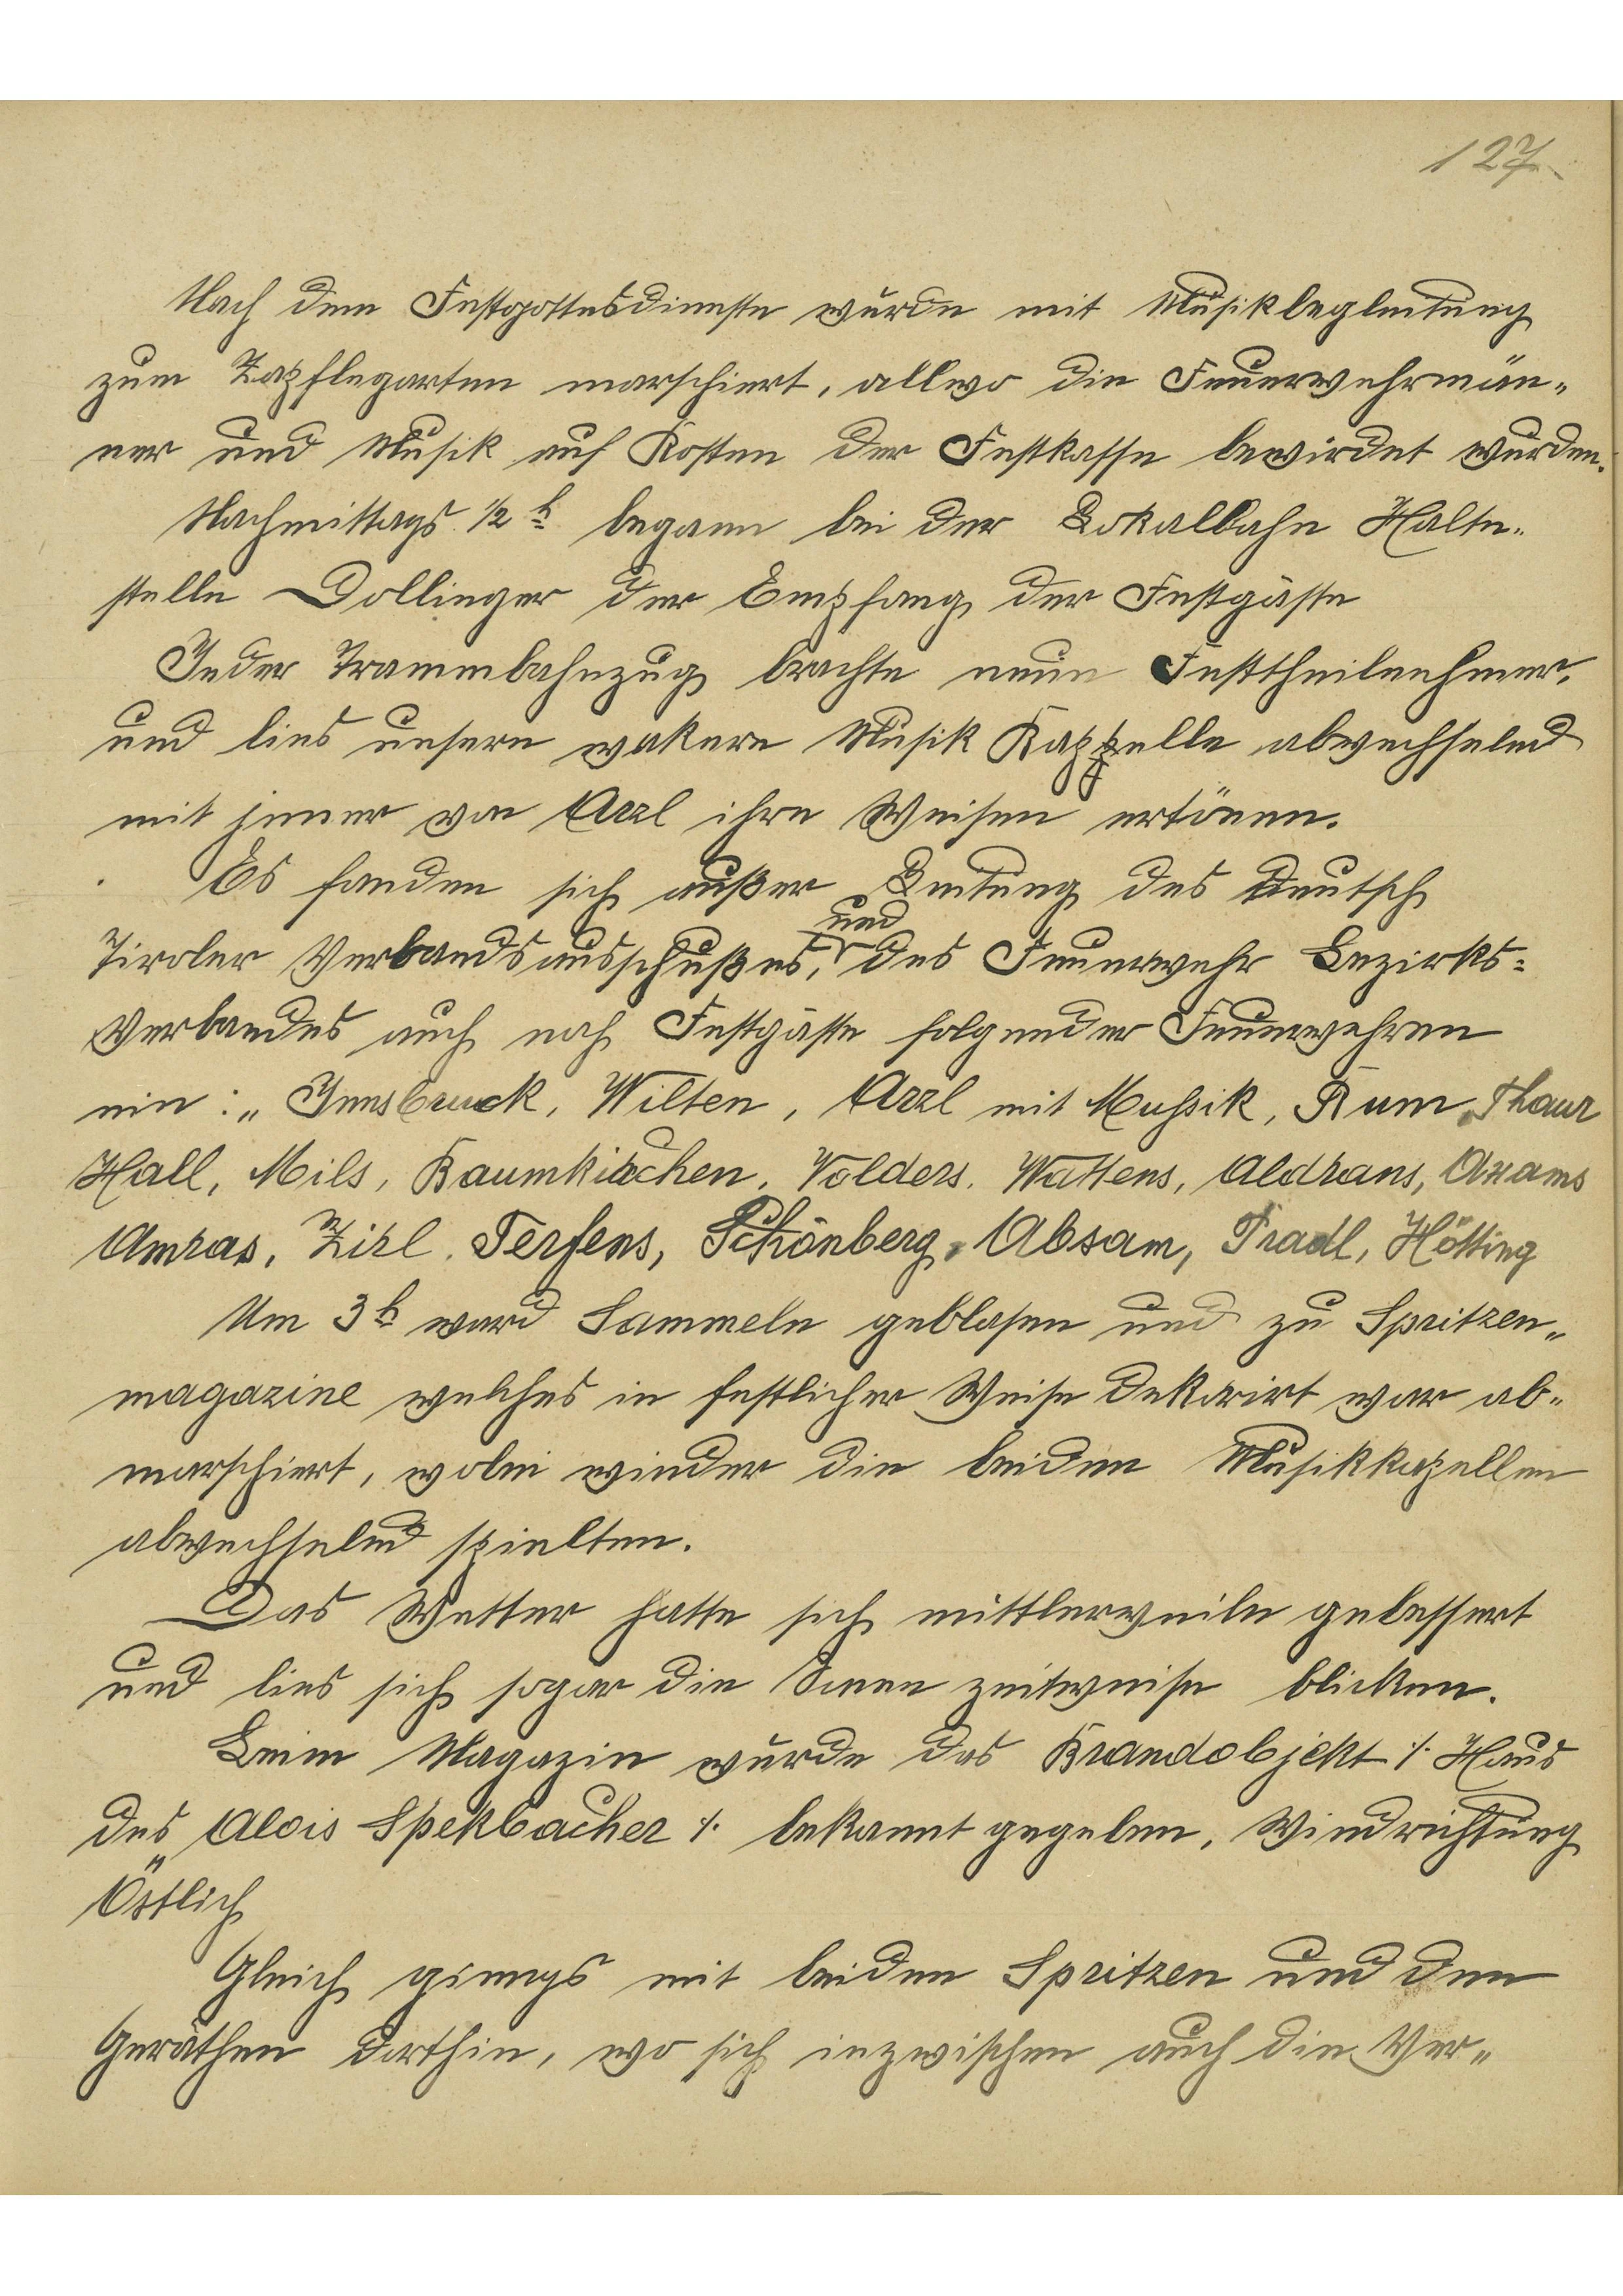 127
Nach dem Festgottesdienste wurde mit Musikbegleitung
zum Zapflegarten marschiert, allwo die Feuerwehrmän-
ner und Musik auf Kosten der Festkasse bewirdet wurden.
Nachmittags 1/2 h began bei der Lokalbahn Halte-
stelle Dollinger der Empfang der Festgäste
Jeder Trammbahnzug brachte neue Festtheilnehmer,
und lies unsere wakere Musik Kappelle abwechselnd
mit jener von Arzl ihre Weisen ertönen.
Es fanden sich außer Leitung des Deutsch
und
Tiroler Verbandsausschußes, des Feuerwehr Bezirks-
Verbandes auch noch Festgäste folgender Feuerwehren
ein: „ Innsbruck, Wilten, Arzl mit Mussik, Rum, Thaur
Hall, Mils, Baumkirchen, Volders, Wattens, Aldrans, Axams
Amras, Zirl, Terfens, Schönberg, Absam, Pradl, Hötting
Um 3 h ward Sammeln geblasen und zu Spritzen-
magazine welches in festlicher Weise dekorirt war ab-
marschiert, wobei wieder die beiden Musikkapellen
abwechselnd spielten.
Das Wetter hatte sich mittlerweile gebessert
und lies sich sogar die Sonne zeitweise blicken.
Beim Magazin wurde das Brandobjekt ⁒ Haus
des Alois Spekbacher ⁒ bekannt gegeben, Windrichtung
Östlich
Gleich giengs mit beiden Spritzen und den
Geräthen dorthin, wo sich inzwischen auch die Ver-